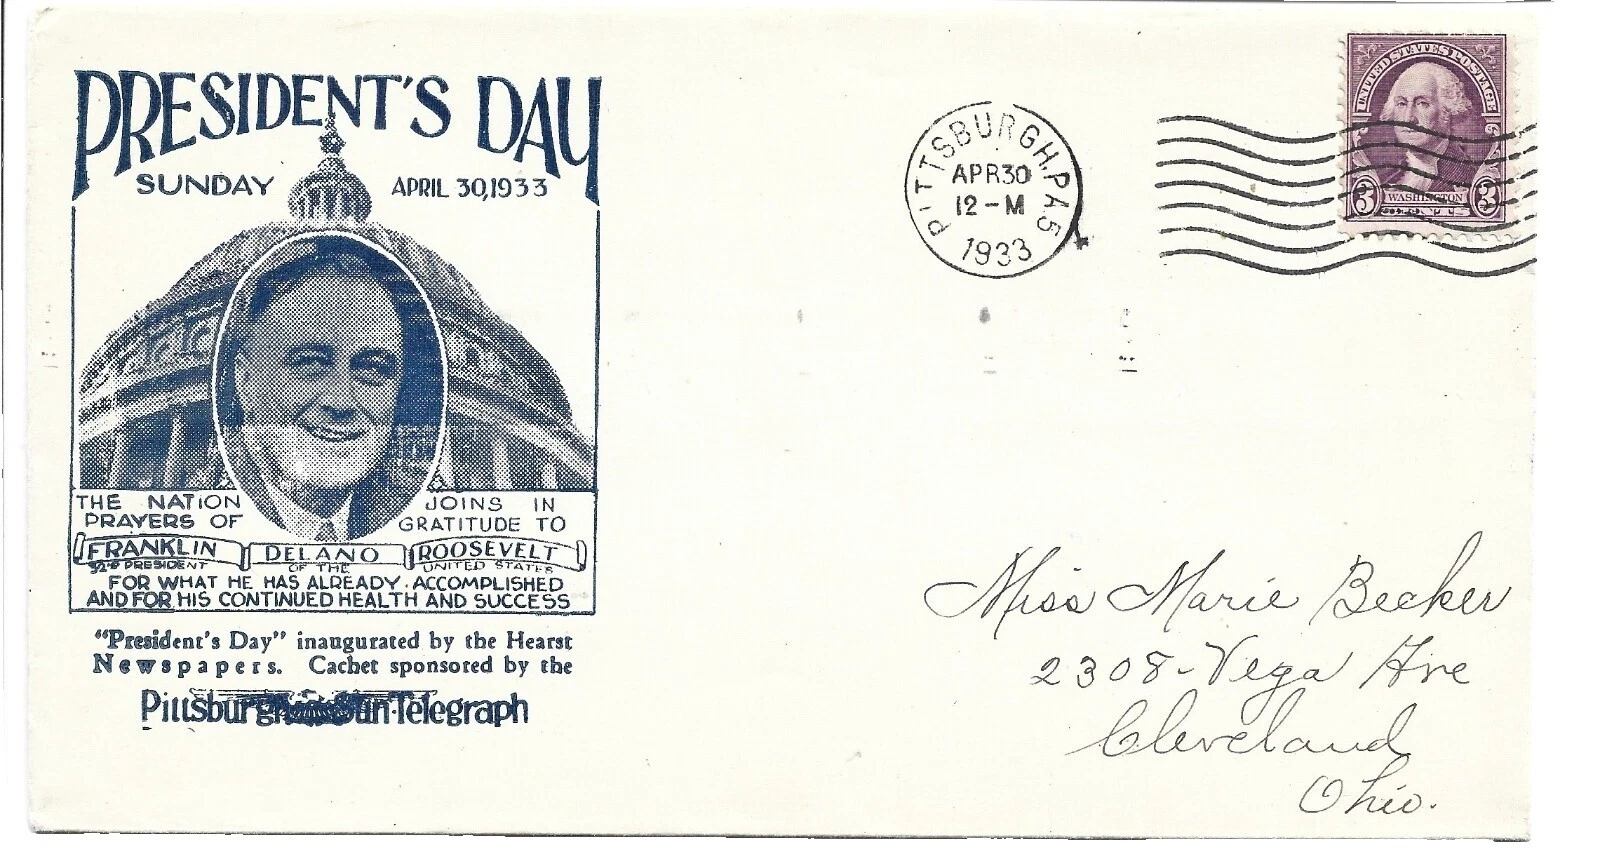 PRESIDENT'S DAY
SUNDAY APRIL 30, 1933
THE NATION JOINS IN
PRAYERS OF GRATITUDE TO
FRANKLIN DELANO ROOSEVELT
32ND PRESIDENT OF THE UNITED STATES
FOR WHAT HE HAS ALREADY ACCOMPLISHED
AND FOR HIS CONTINUED HEALTH AND SUCCESS
"President's Day" inaugurated by the Hearst
Newspapers. Cachet sponsored by the
Pittsburgh Sun-Telegraph
PITTSBURGH, PA. 5
APR 30
12-M
1933
UNITED STATES POSTAGE
WASHINGTON
3 3
Miss Marie Becker
2308-Vega Ave
Cleveland
Ohio.